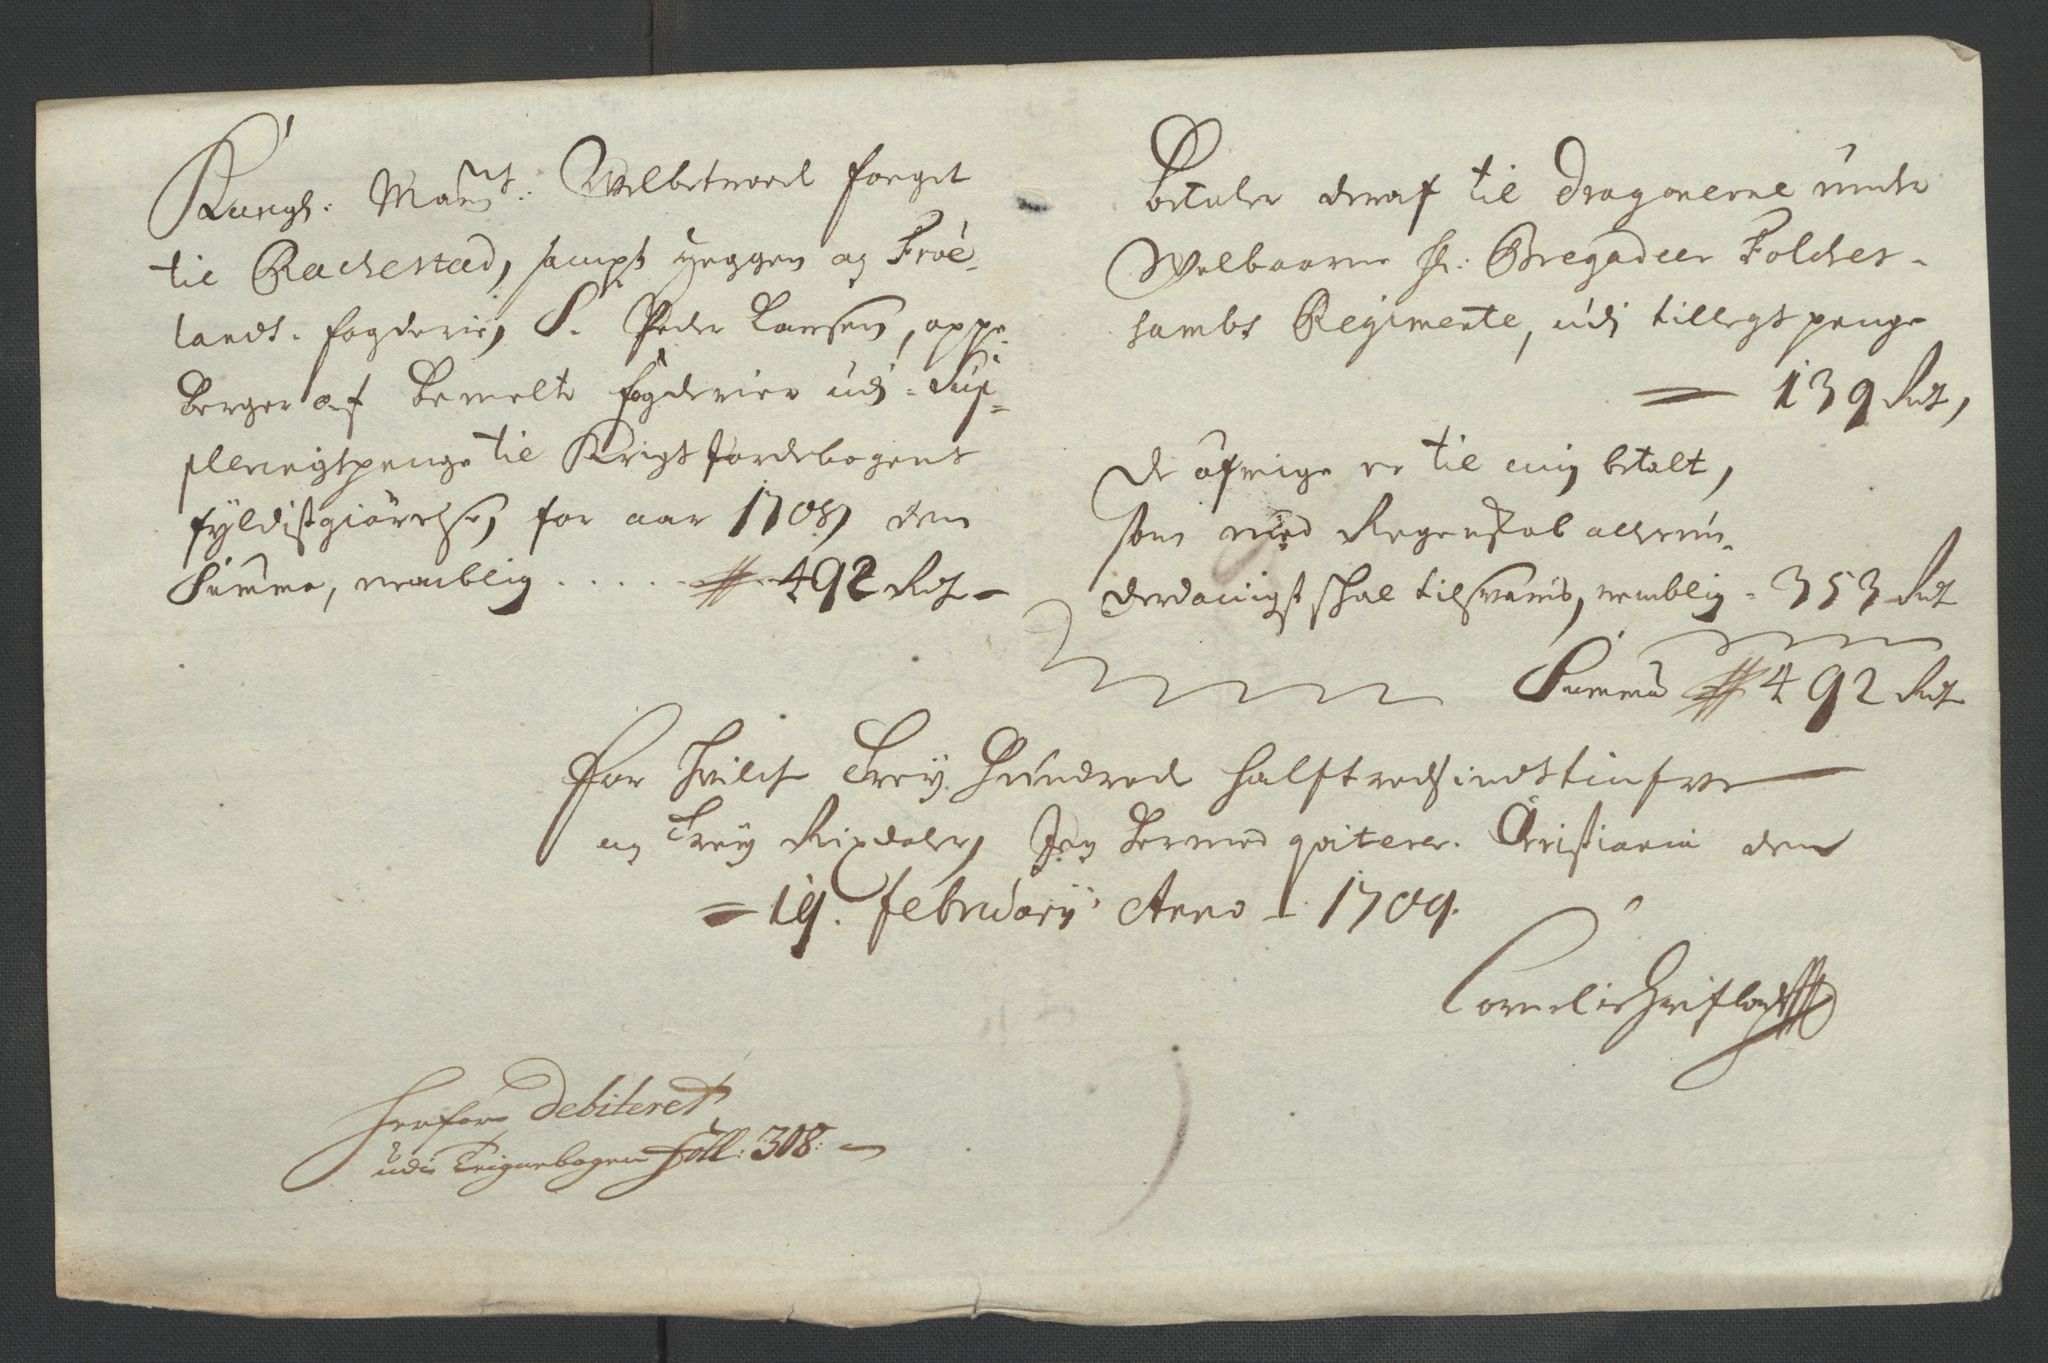 Kongl: Mayts: Velbetroed fogit
til Rachestad, sampt Heggen og Frøe-
lands fogderie, Sr. Peder Larsen, oppe-
berger af bemelte fogderier udj Sup-
plerings penge til Krigs Jordebogens
fyldistgiørelse, for aar 1708, den
Summa, nemblig ..... # 492 Rdr
Betaler deraf til Dragonerne under
Welbaarne Hr: Bregadeer Folcker-
sambs Regimente, udj tillegs penge
139 Rdr,
De øfrige er til mig betalt,
som med Regenskab allerun-
derdanigst schal tilsvaris, nemblig - 353 Rdr
Summa # 492 Rdr
For hvilche Trey Hundred halftredsindstiufve
og Trey Rixdaler, Jeg hermed qviterer. Christiania den
19. february Anno 1709.
Herfore Debiteret
udi Reignebogen foll: 308: